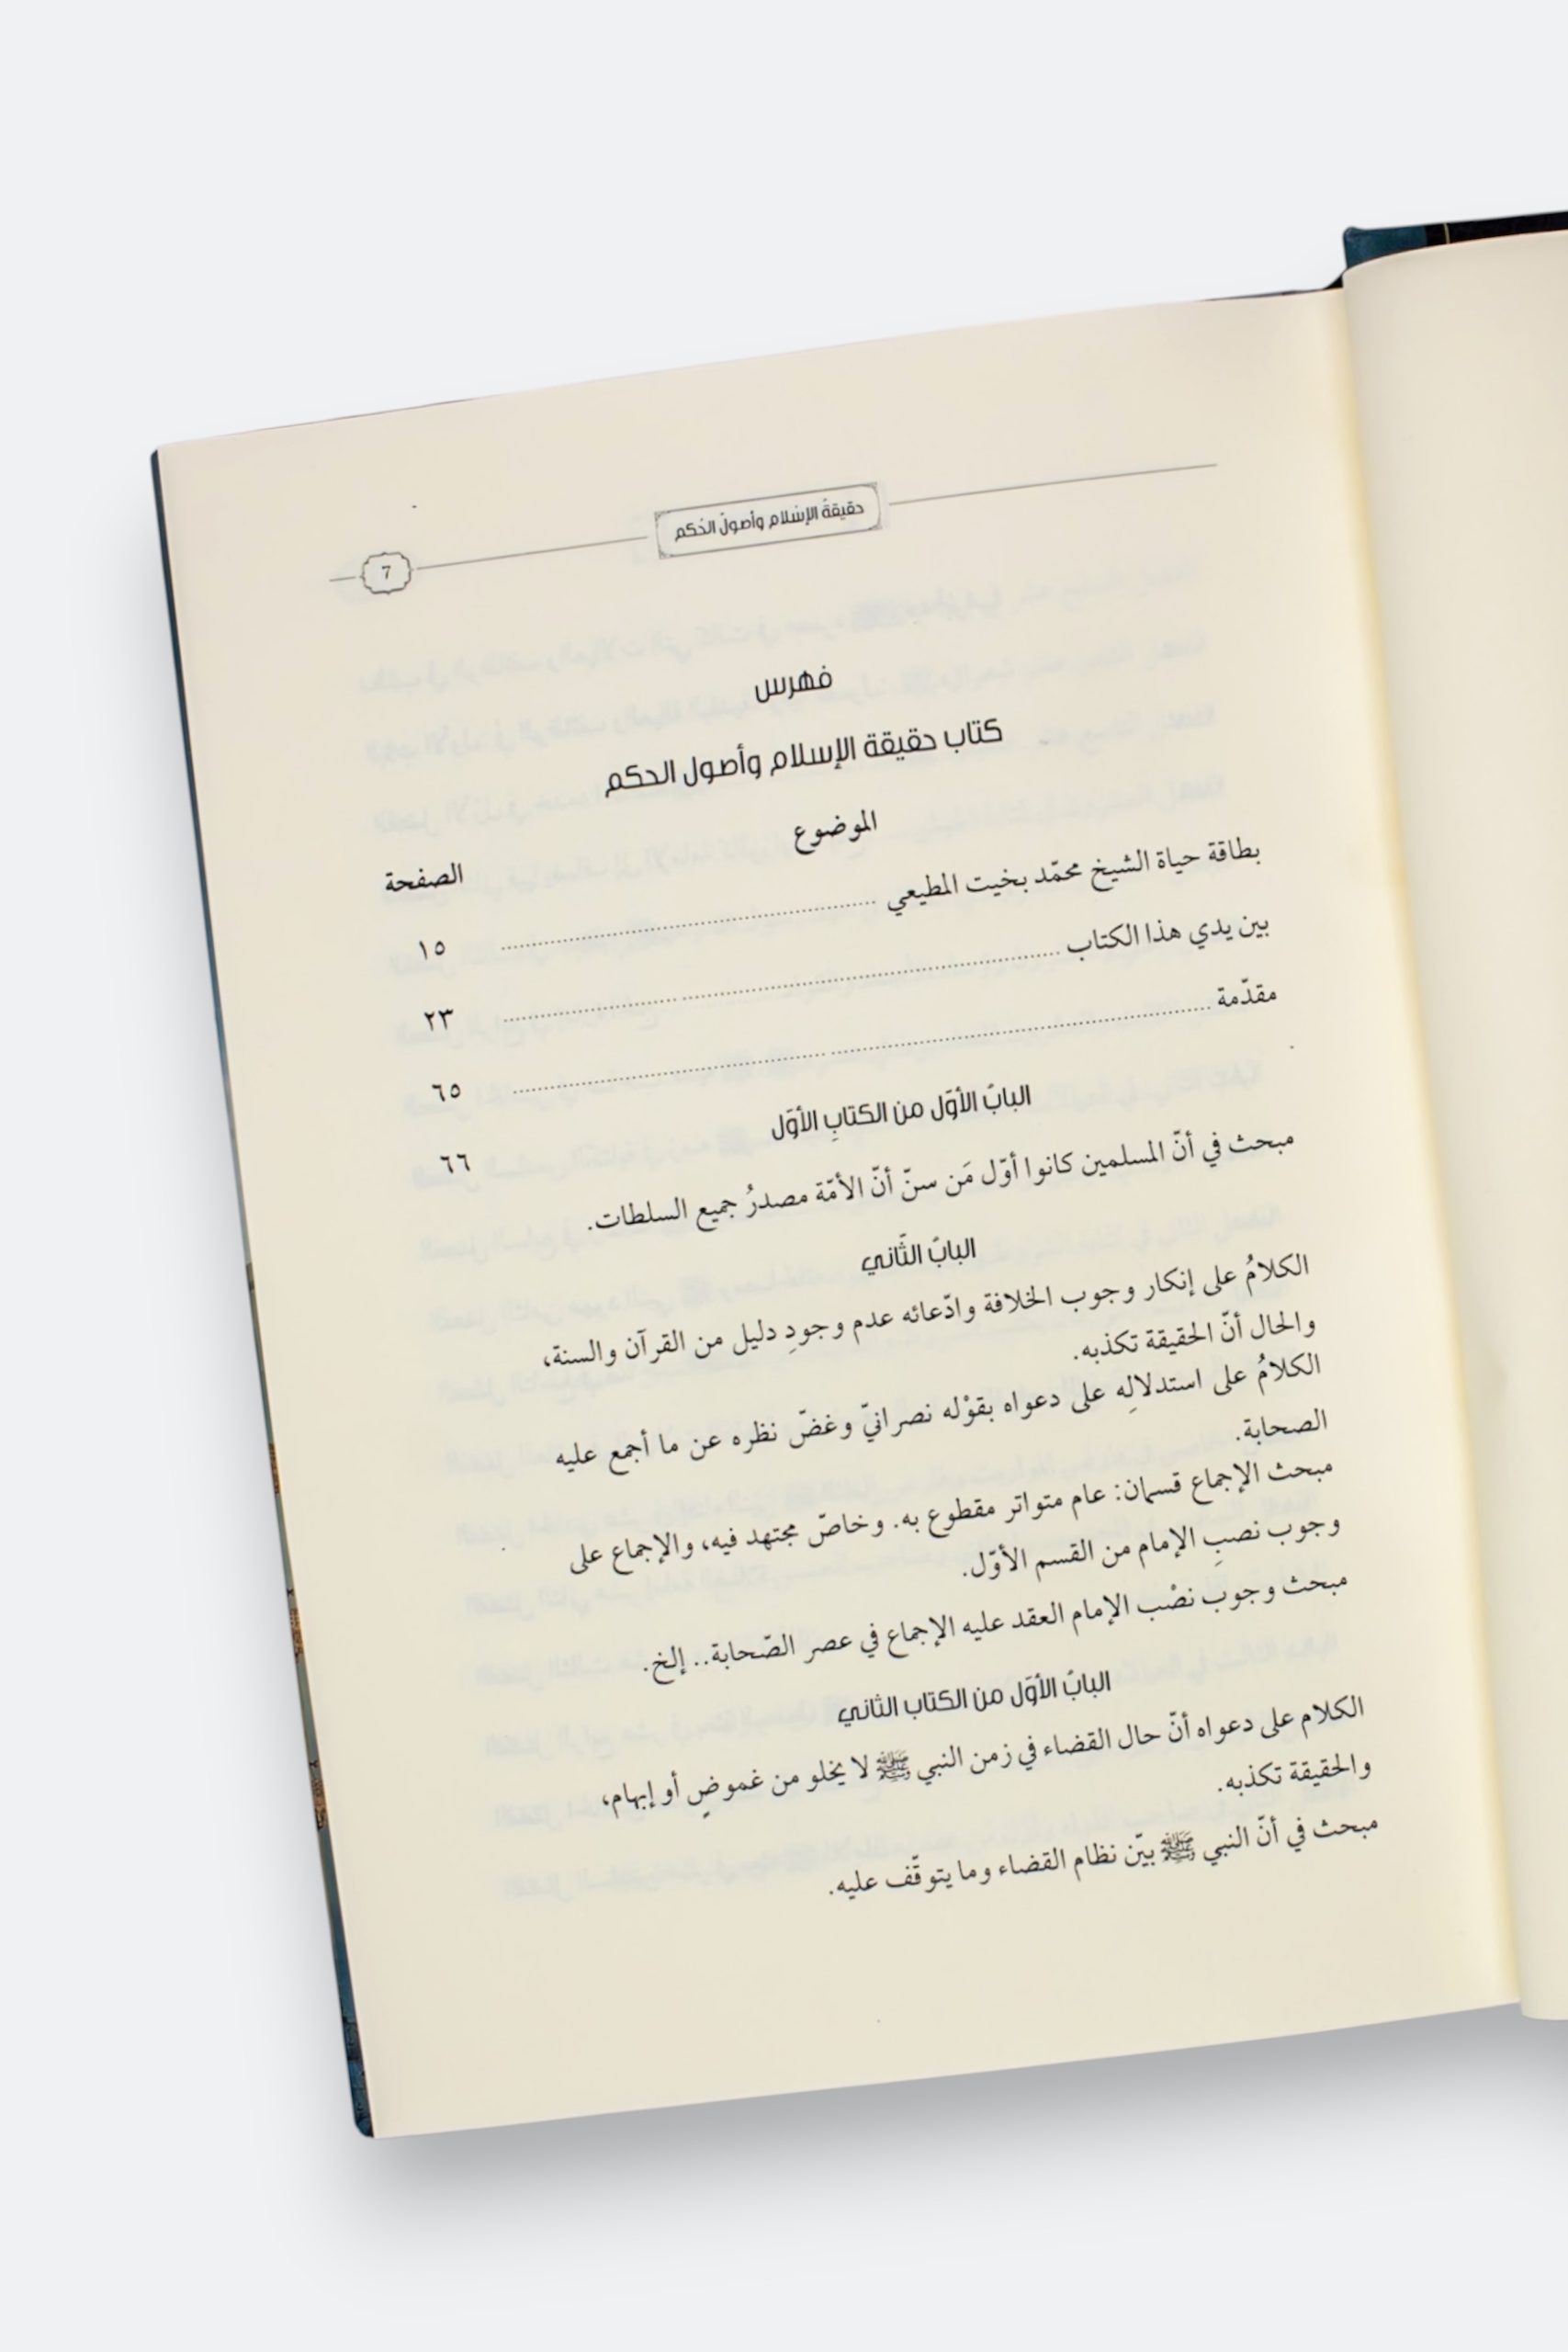 حقيقةُ الإسْلام وأصولُ الحُكم
7
فهرس
كتاب حقيقة الإسلام وأصول الحكم
الموضوع
الصفحة
بطاقة حياة الشيخ محمّد بخيت المطيعي ١٥
بين يدي هذا الكتاب ٢٣
مقدّمة ٦٥
البابُ الأوّل من الكتابِ الأوّل
٦٦
مبحث في أنّ المسلمين كانوا أوّل مَن سنّ أنّ الأمّة مصدرُ جميع السلطات.
البابُ الثّاني
الكلامُ على إنكار وجوب الخلافة وادّعائه عدم وجودِ دليل من القرآن والسنة،
والحال أنّ الحقيقة تكذبه.
الكلامُ على استدلالِه على دعواه بقوْله نصرانيّ وغضّ نظره عن ما أجمع عليه
الصحابة.
مبحث الإجماع قسمان: عام متواتر مقطوع به. وخاصّ مجتهد فيه، والإجماع على
وجوب نصبِ الإمام من القسم الأوّل.
مبحث وجوب نصْب الإمام العقد عليه الإجماع في عصر الصّحابة.. إلخ.
البابُ الأوّل من الكتاب الثاني
الكلام على دعواه أنّ حال القضاء في زمن النبي ﷺ لا يخلو من غموضٍ أو إبهام،
والحقيقة تكذبه.
مبحث في أنّ النبي ﷺ بيّن نظام القضاء وما يتوقّف عليه.